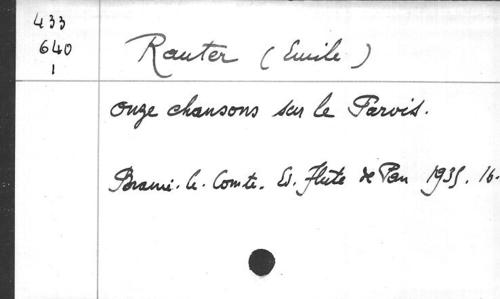 433
640
1
Rauter (Emile)
Onze chansons sur le Parvis.
Braine-le-Comte. Ed. Flute de Pan 1935. 16-